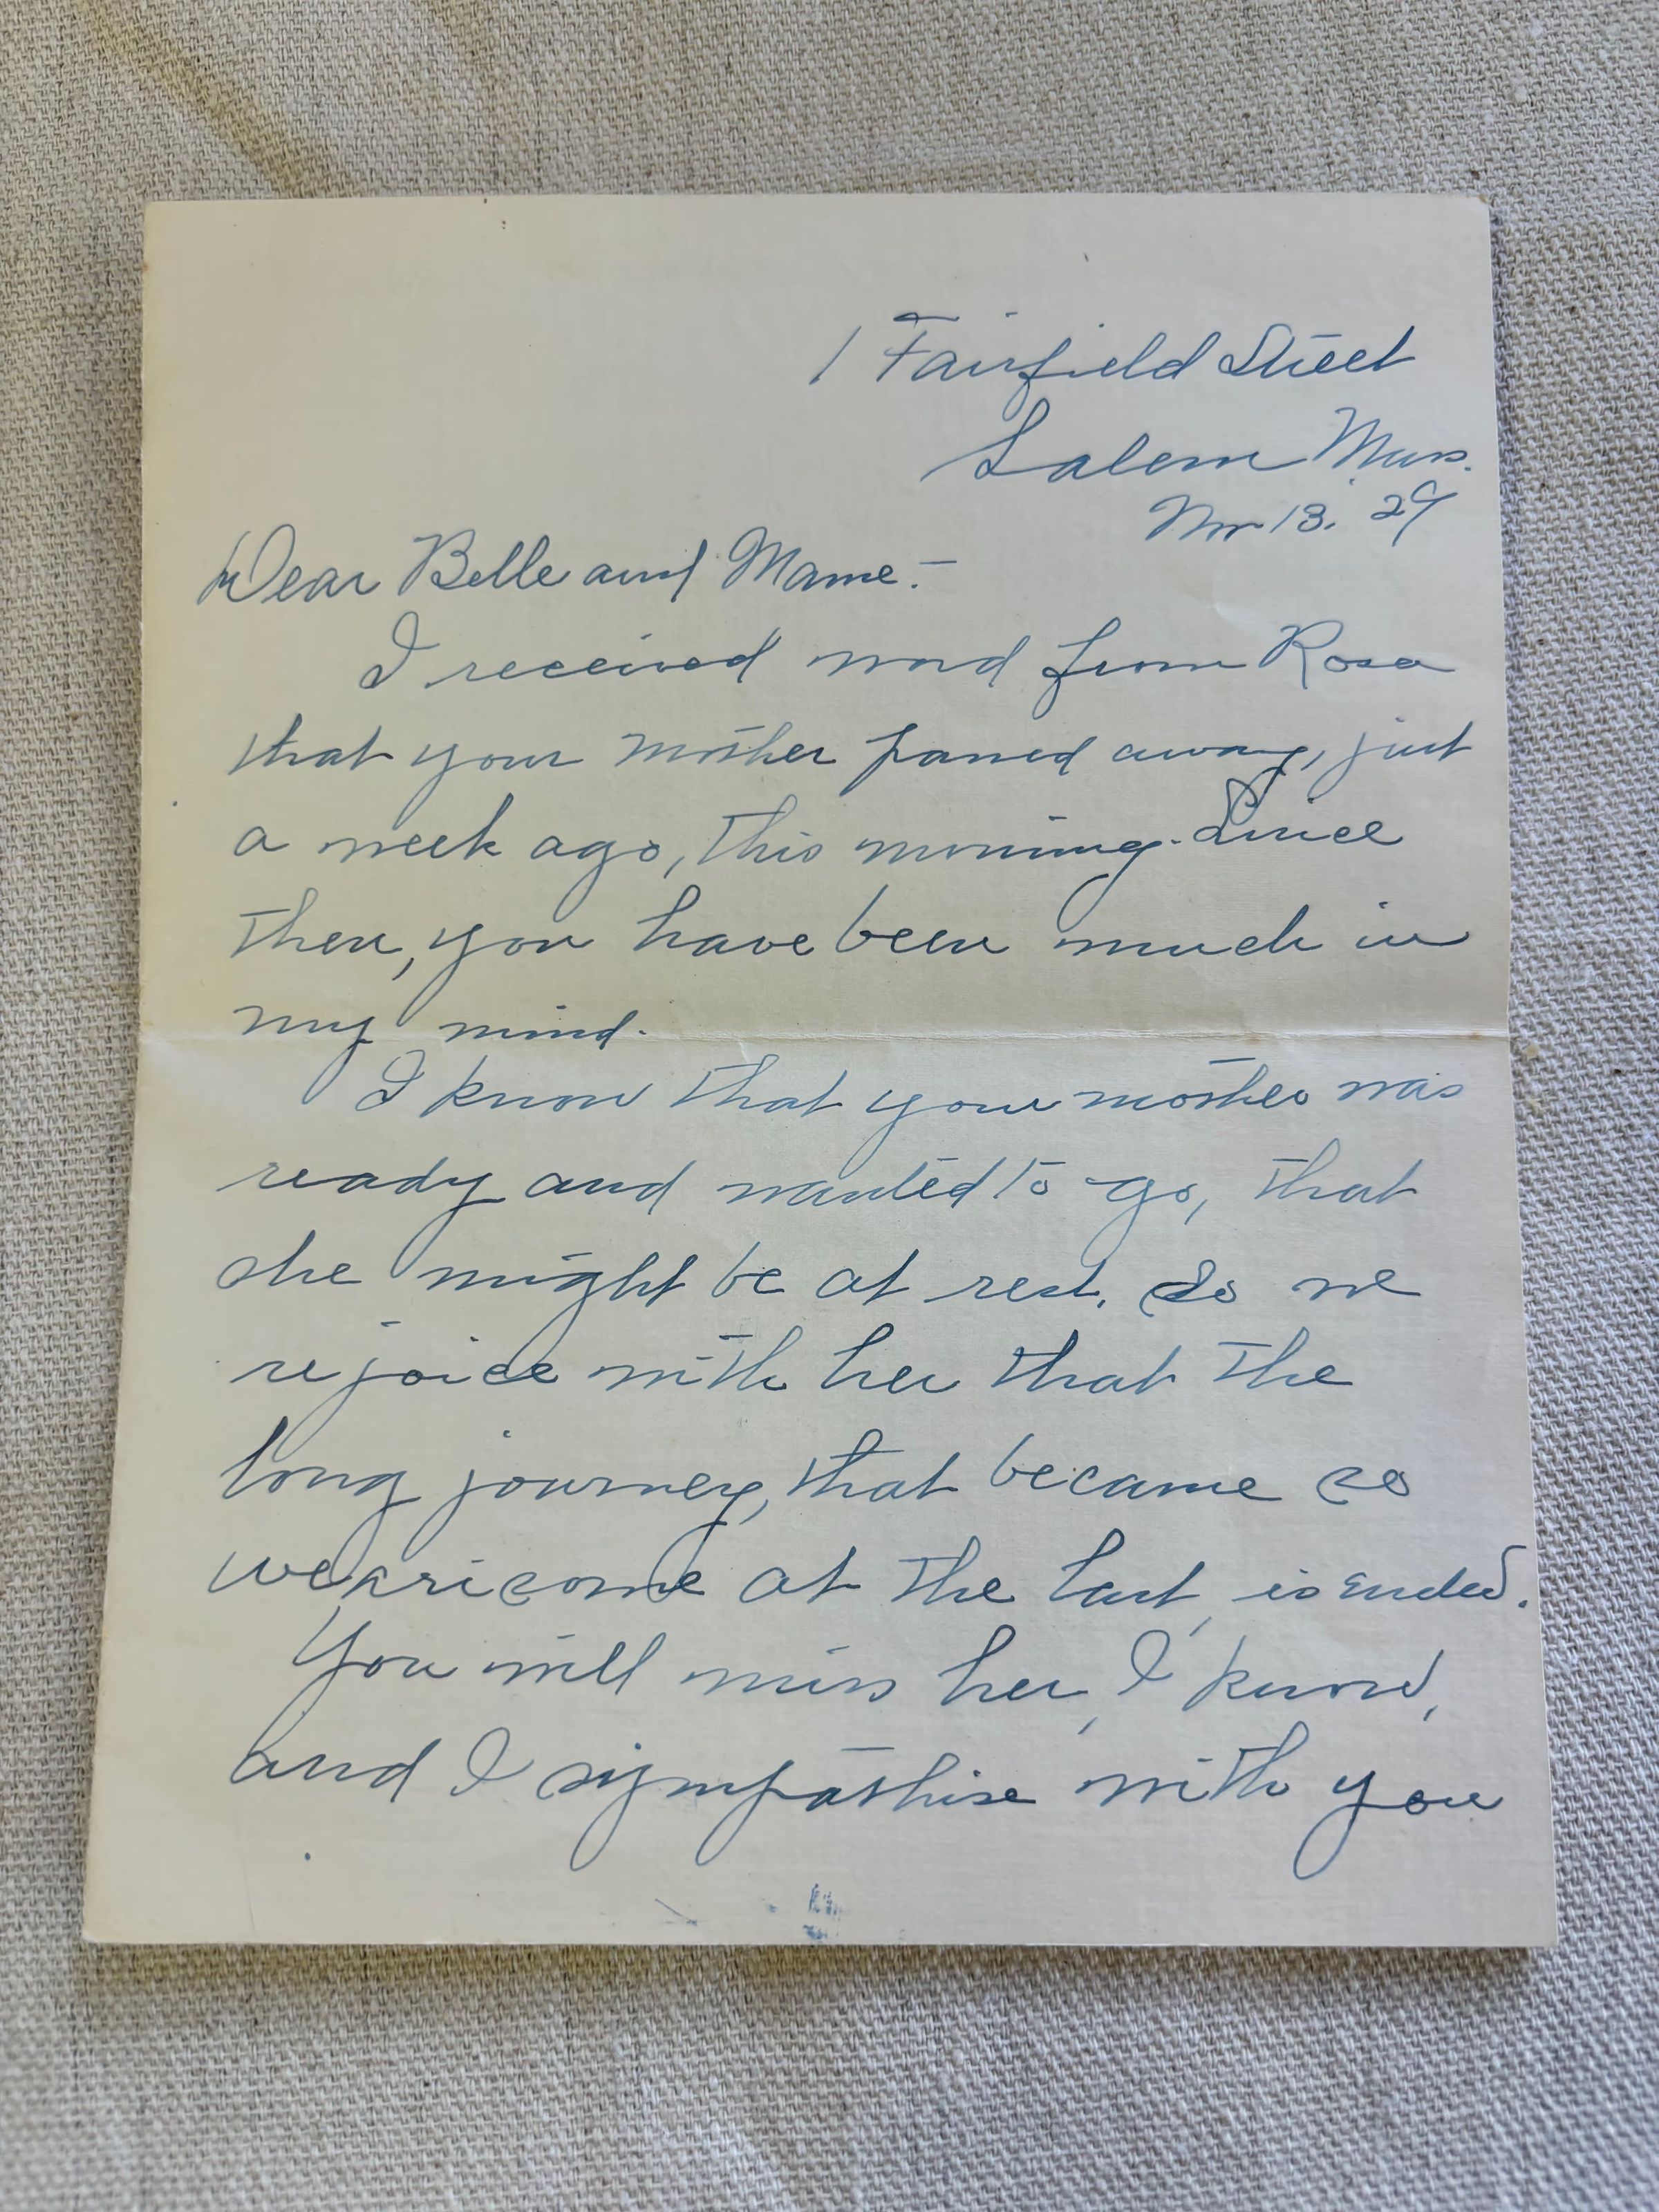 1 Fairfield Street
Salem Mass.
Nov 13. 29
Dear Belle and Mame:-
I received word from Rosa
that your mother passed away, just
a week ago, this morning. Since
then, you have been much in
my mind.
I know that your mother was
ready and wanted to go, that
she might be at rest. So we
rejoice with her that the
long journey, that became so
wearisome at the last, is ended.
You will miss her, I know,
and I sympathise with you